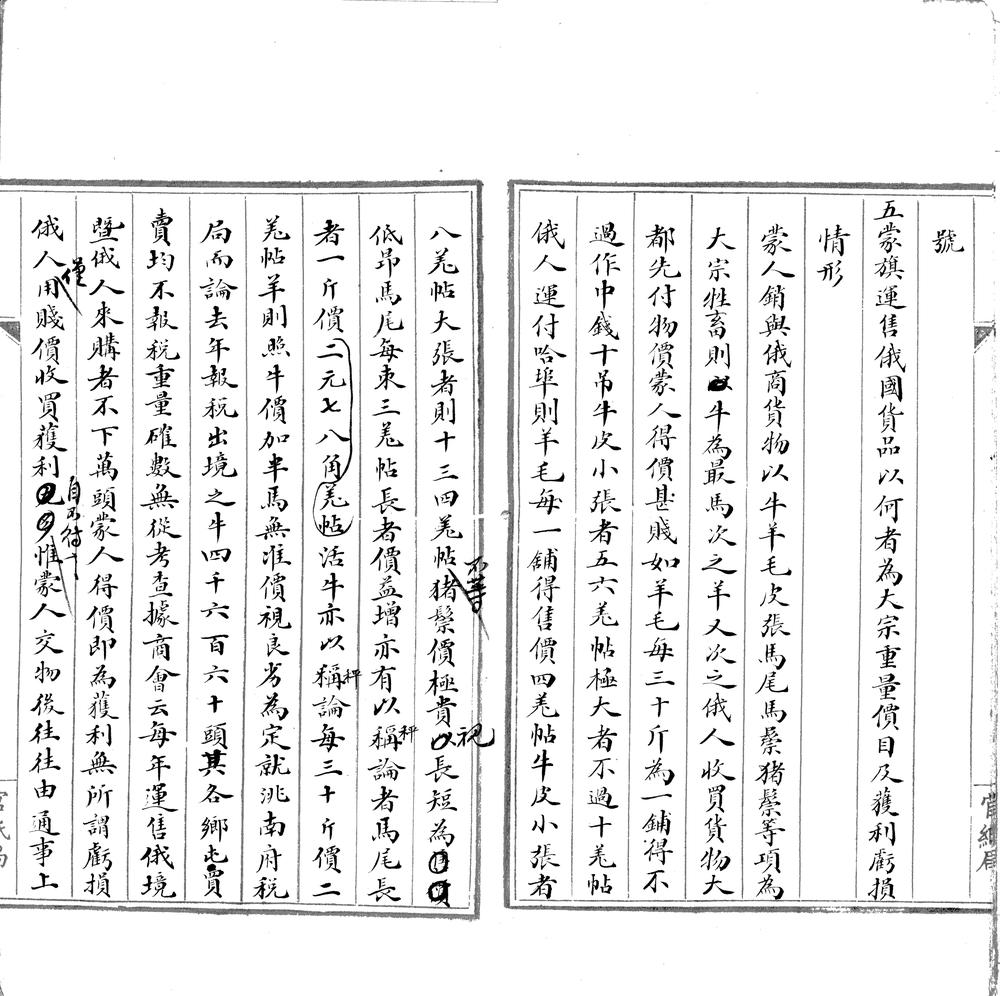 號
五蒙旗運售俄國貨品以何者為大宗重量價目及獲利虧損
情形
蒙人銷與俄商貨物以牛羊毛皮張馬尾馬鬃猪鬃等項為
大宗牲畜則牛為最馬次之羊又次之俄人收買貨物大
都先付物價蒙人得價甚賤如羊毛每三十斤為一鋪得不
過作中錢十吊牛皮小張者五六羌帖極大者不過十羌帖
俄人運付哈埠則羊毛每一舖得售價四羌帖牛皮小張者
八羌帖大張者則十三四羌帖不等猪鬃價極貴視長短為
低昂馬尾每束三羌帖長者價益增亦有以稱秤論者馬尾長
者一斤價二元七八角羌帖活牛亦以稱秤論每三十斤價二
羌帖羊則照牛價加半馬無准價視良劣為定就洮南府稅
局而論去年報稅出境之牛四千六百六十頭其各鄉屯買
賣均不報稅重量確數無從考查據商會云每年運售俄境
曁俄人來購者不下萬頭蒙人得價即為獲利無所謂虧損
俄人僅用賤價收買獲利自不待惟蒙人交物後往往由通事上